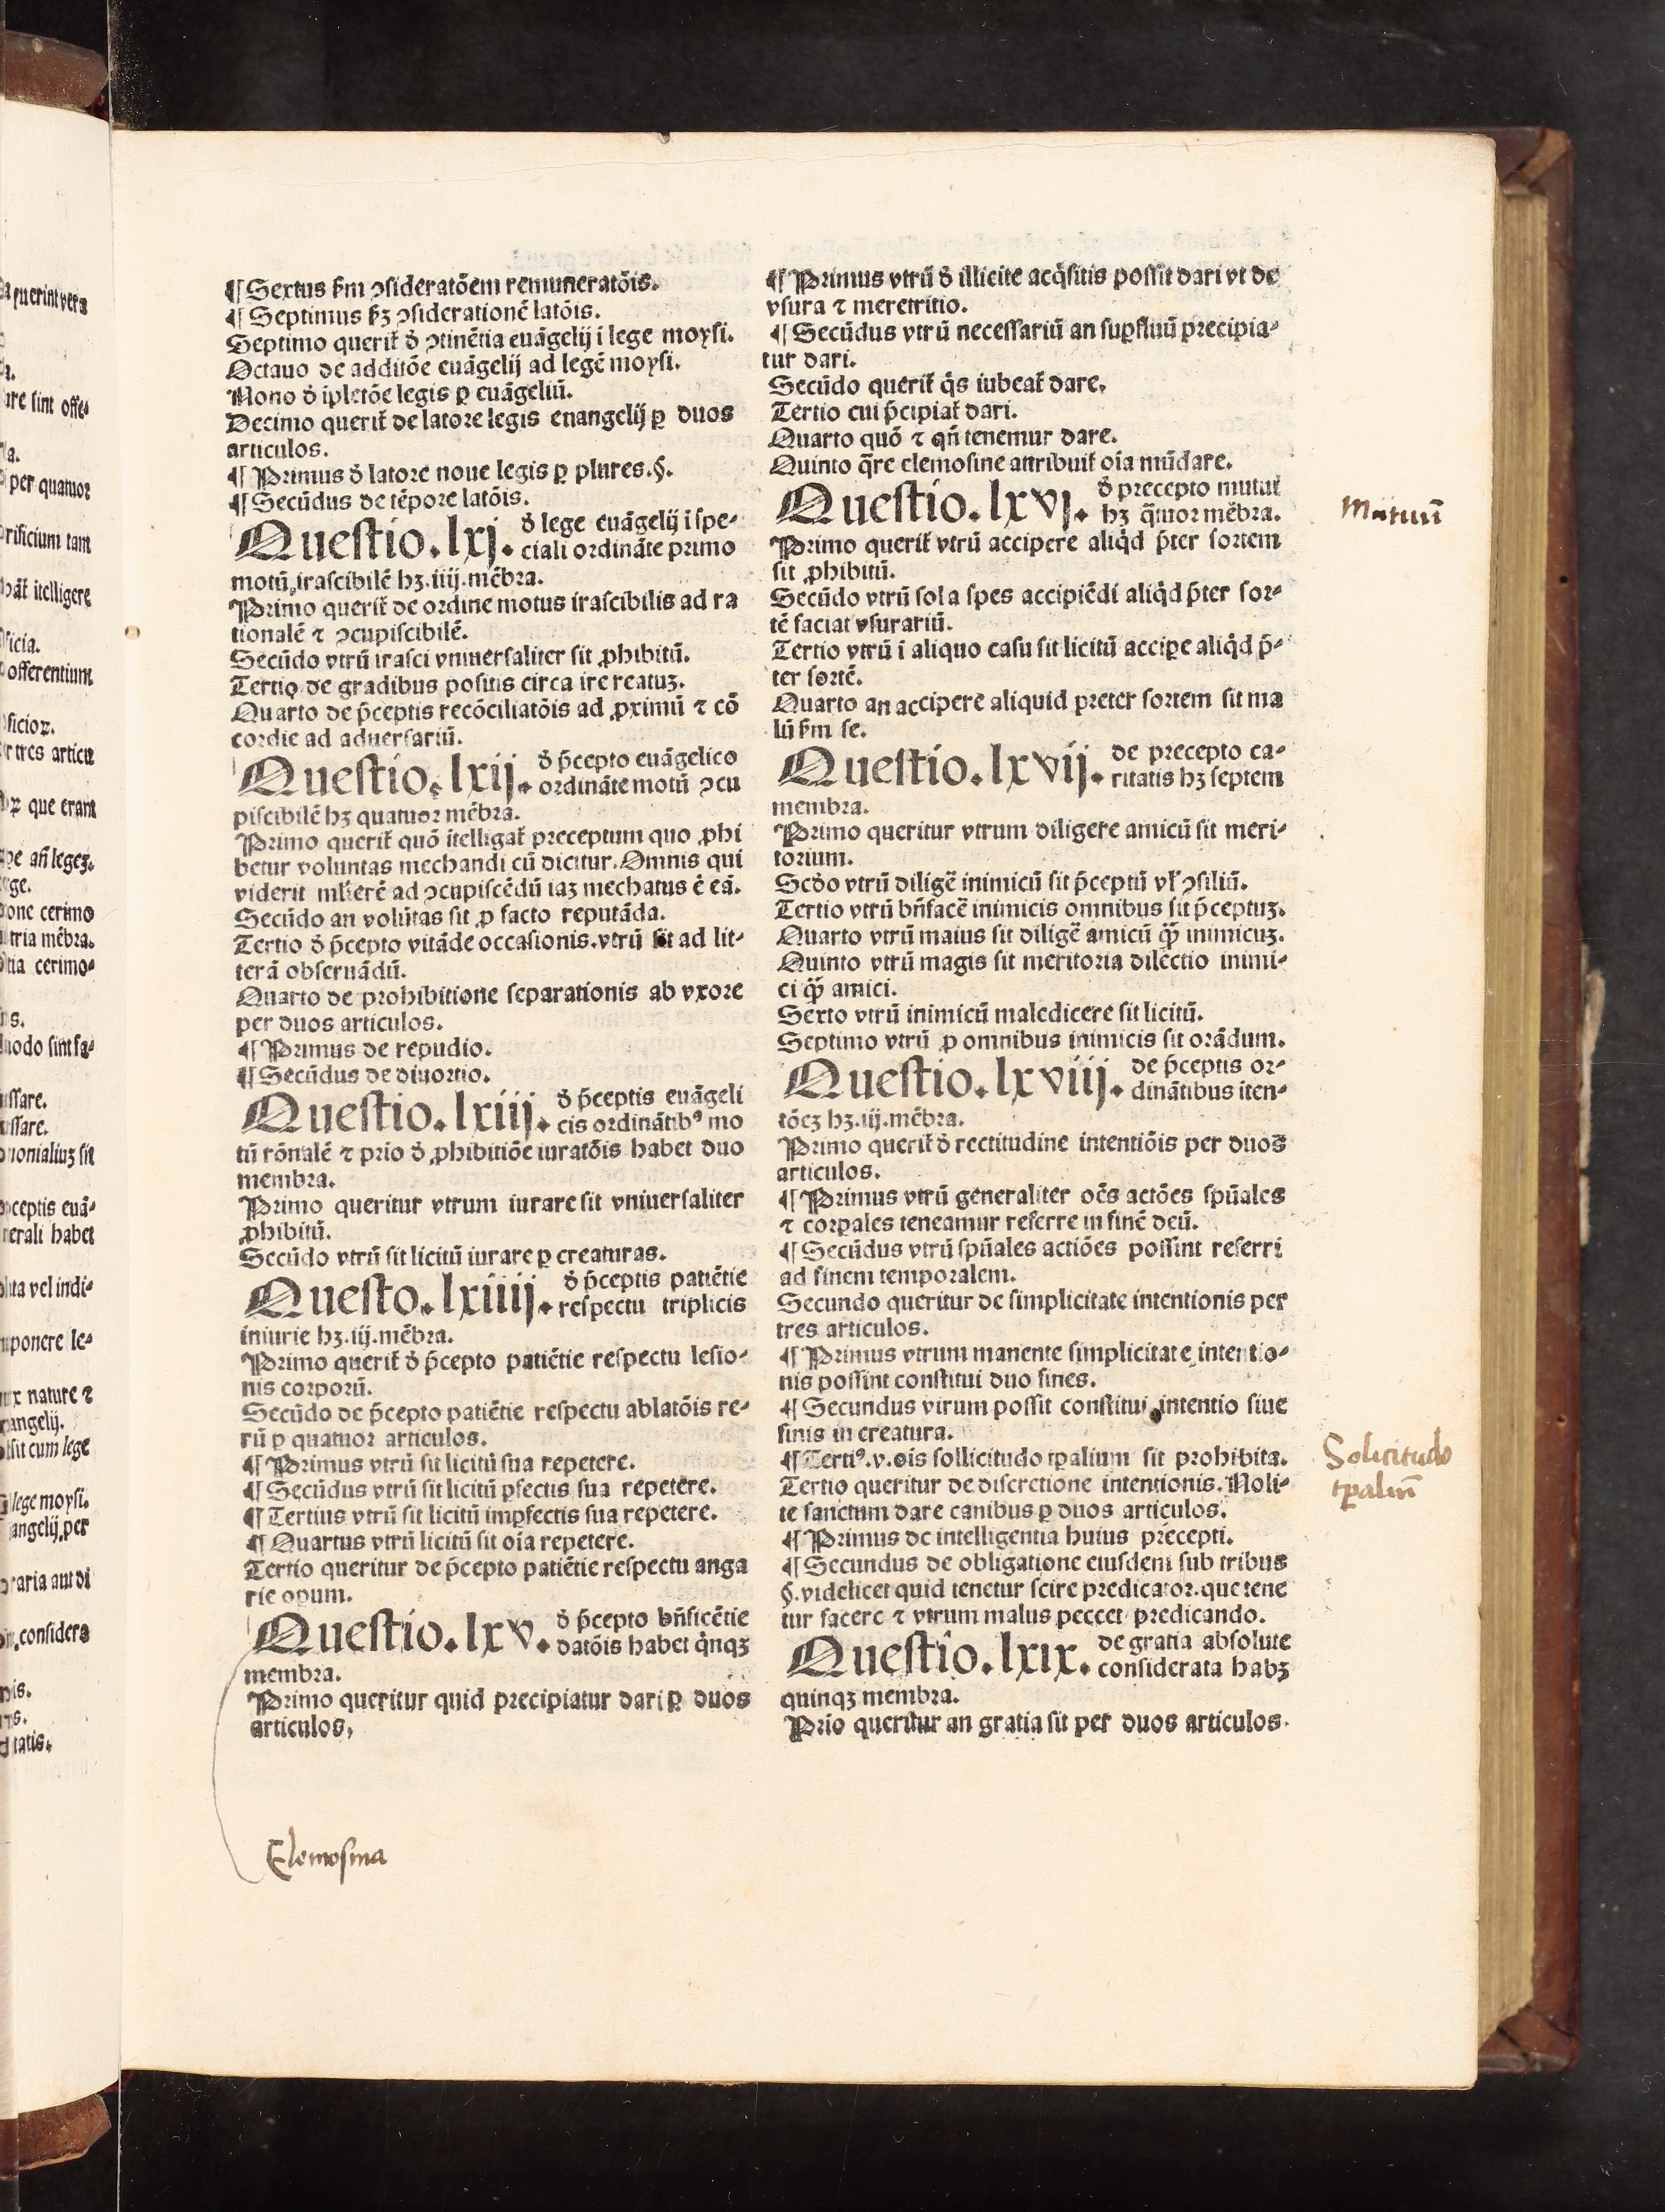 ¶ Sextus ẜm ↄſideratōem remuneratōis.
¶ Septimus ẜꝫ ↄſiderationē latōis.
Septimo queriꞇ̃ ꝺ̊ ↄtinētia euāgelij i lege moyſi.
Octauo de additōe euāgelij ad legē moyſi.
Nono ꝺ̊ ipletōe legis ꝑ euāgeliū.
Decimo queriꞇ̃ de latore legis euangelij ꝑ duos
articulos.
¶ Primus ꝺ̊ latore noue legis ꝑ plures.§.
¶ Secūdus de tēpore latōis.
Queſtio.lxj. ꝺ̊ lege euāgelij i ſpe⸗
ciali ordināte primo
motū iraſcibilē hꝫ.iiij.mēbra.
Primo queriꞇ̃ de ordine motus iraſcibilis ad ra
tionalē ⁊ ↄcupiſcibilē.
Secūdo vtrū iraſci vniuerſaliter ſit ꝓhibitū.
Tertio de gradibus poſitis circa ire reatuꝫ.
Quarto de p̄ceptis recōciliatōis ad ꝓximū ⁊ cō
cordie ad aduerſariū.
Queſtio.lxij. ꝺ̊ p̄cepto euāgelico
ordināte motū ↄcu
piſcibilē hꝫ quatuor mēbra.
Primo queriꞇ̃ quō itelligaꞇ̃ preceptum quo ꝓhi
betur voluntas mechandi cū dicitur. Omnis qui
viderit mlīerē ad ↄcupiſcēdū iaꝫ mechatus ē eā.
Secūdo an volūtas ſit ꝓ facto reputāda.
Tertio ꝺ̊ p̄cepto vitāde occaſionis.vtrū ſit ad lit⸗
terā obſeruādū.
Quarto de prohibitione ſeparationis ab vxore
per duos articulos.
¶ Primus de repudio.
¶ Secūdus de diuortio.
Queſtio.lxiij. ꝺ̊ p̄ceptis euāgeli
cis ordinātibꝰ mo
tū rōnalē ⁊ prio ꝺ̊ ꝓhibitiōe iuratōis habet duo
membra.
Primo queritur vtrum iurare ſit vniuerſaliter
ꝓhibitū.
Secūdo vtrū ſit licitū iurare ꝑ creaturas.
Queſto.lxiiij. ꝺ̊ p̄ceptis patiētie
reſpectu triplicis
iniurie hꝫ.iij.mēbra.
Primo queriꞇ̃ ꝺ̊ p̄cepto patiētie reſpectu leſio⸗
nis corporū.
Secūdo de p̄cepto patiētie reſpectu ablatōis re⸗
rū ꝑ quatuor articulos.
¶ Primus vtrū ſit licitū ſua repetere.
¶ Secūdus vtrū ſit licitū ꝑfectis ſua repetere.
¶ Tertius vtrū ſit licitū imꝑfectis ſua repetere.
¶ Quartus vtrū licitū ſit oīa repetere.
Tertio queritur de p̄cepto patiētie reſpectu anga
rie opum.
Queſtio.lxv. ꝺ̊ p̄cepto bn̄ficētie
datōis habet q̇nqꝫ
membra.
Primo queritur quid precipiatur dari ꝑ duos
articulos,
Elemoſina
¶ Primus vtrū ꝺ̊ illicite acq̇ſitis poſſit dari vt de
vſura ⁊ meretritio.
¶ Secūdus vtrū neceſſariū an ſuꝑfluū precipia⸗
tur dari.
Secūdo queriꞇ̃ q̇s iubeaꞇ̃ dare.
Tertio cui p̄cipiaꞇ̃ dari.
Quarto quō ⁊ qn̄ tenemur dare.
Quinto q̄re elemoſine attribuiꞇ̃ oīa mūdare.
Queſtio.lxvj. ꝺ̊ precepto mutui
hꝫ q̄tuor mēbra.
Primo queriꞇ̃ vtrū accipere aliq̇d p̄ter ſortem
ſit ꝓhibitū.
Secūdo vtrū ſola ſpes accipiēdi aliq̇d p̄ter ſor⸗
tē faciat vſurariū.
Tertio vtrū i aliquo caſu ſit licitū acciꝑe aliq̇d p̄⸗
ter ſortē.
Quarto an accipere aliquid preter ſortem ſit ma
lū ẜm ſe.
Queſtio.lxvij. de precepto ca⸗
ritatis hꝫ ſeptem
membra.
Primo queritur vtrum diligere amicū ſit meri⸗
torium.
Scꝺ̊o vtrū diligē inimicū ſit p̄ceptū vl̓ ↄſiliū.
Tertio vtrū bn̄facē inimicis omnibus ſit p̄ceptuꝫ.
Quarto vtrū maius ſit diligē amicū q̄ꝫ inimicuꝫ.
Quinto vtrū magis ſit meritoria dilectio inimi⸗
ci q̄ꝫ amici.
Sexto vtrū inimicū maledicere ſit licitū.
Septimo vtrū ꝓ omnibus inimicis ſit orādum.
Queſtio.lxviij. de p̄ceptis or⸗
dinātibus iten⸗
tōeꝫ hꝫ.iij.mēbra.
Primo queriꞇ̃ ꝺ̊ rectitudine intentiōis per duos
articulos.
¶ Primus vtrū generaliter oēs actōes ſpūales
⁊ corꝑales teneamur referre in finē deū.
¶ Secūdus vtrū ſpūales actiōes poſſint referri
ad finem temporalem.
Secundo queritur de ſimplicitate intentionis per
tres articulos.
¶ Primus vtrum manente ſimplicitate intentio⸗
nis poſſint conſtitui duo fines.
¶ Secundus vtrum poſſit conſtitui intentio ſiue
finis in creatura.
¶ Tertiꝰ.v.oīs ſollicitudo tꝑalium ſit prohibita.
Tertio queritur de diſcretione intentionis. Noli⸗
te ſanctum dare canibus ꝑ duos articulos.
¶ Primus de intelligentia huius precepti.
¶ Secundus de obligatione eiuſdem ſub tribus
§.videlicet quid tenetur ſcire predicator.que tene
tur facere ⁊ vtrum malus peccet predicando.
Queſtio.lxix. de gratia abſolute
conſiderata habꝫ
quinqꝫ membra.
Prio queritur an gratia ſit per duos articulos.
Mutuū
Solicitudo
tꝑaliū